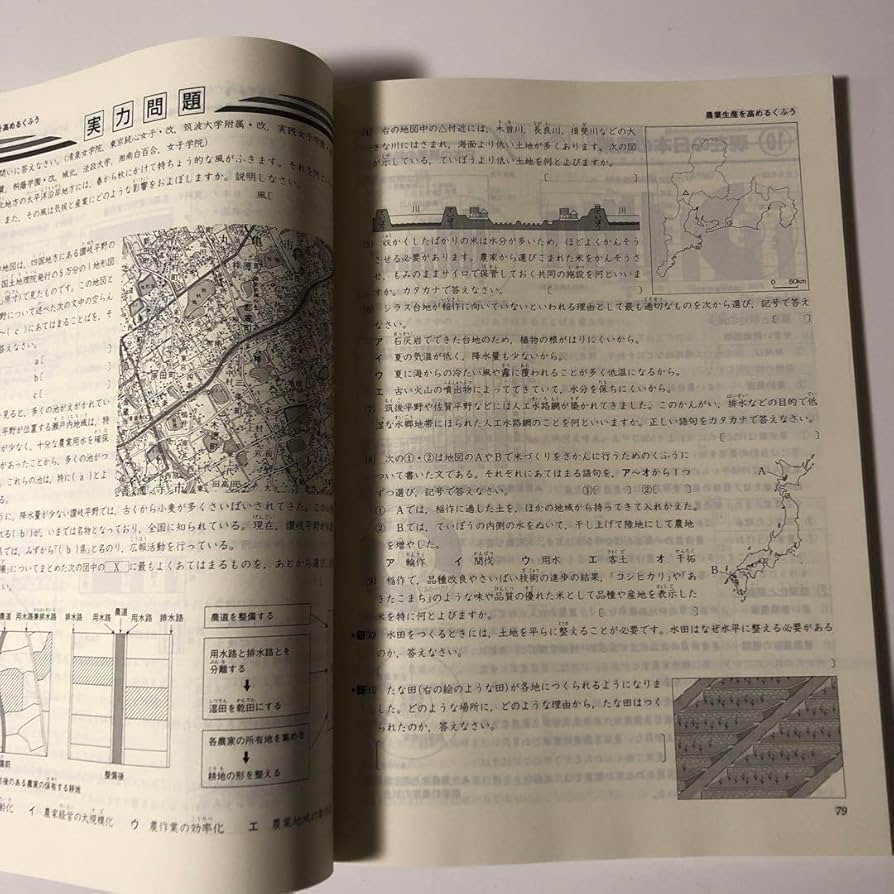 を高めるくふう
実力問題
問いに答えなさい。(清泉女学院, 東京純心女子・改, 筑波大学附属・改, 実践女子学
桐蔭学園・改, 城北, 法政大学, 湘南白百合, 女子学院)
北地方の太平洋沿岸地方には, 春から秋にかけて特ちょう的な風がふきます。それを何と
また, その風は気候と産業にどのような影響をおよぼしますか。説明しなさい。
風[
の地図は, 四国地方にある讃岐平野の
国土地理院発行の5万分の1地形図
で見たものです。この地図と
野について述べた次の文中の空らん
~(c)にあてはまることばを, そ
答えなさい。
a[ ]
b[ ]
c[ ]
見ると, 多くの池がえがかれてい
平野が位置する瀬戸内地域は, 特
が少なく, 十分な農業用水を確保
があったことから, 多くの池がつ
。これらの池は, 特に(a)とよ
る。
うに, 降水量が少ない讃岐平野では, 古くから小麦が多くさいばいされてきた。この
れる(b)が, いまでは名物となっており, 全国に知られている。現在, 讃岐平野が
県では, みずから「(b)県」と名のり, 広報活動を行っている。
についてまとめた次の図中の X に最もよくあてはまるものを, あとから選び
農道 用水路兼排水路 排水路 用水路 農道 用水路 排水路
整備後
前後のある農家の保有する耕地
農道を整備する
用水路と排水路とを
分離する
湿田を乾田にする
各農家の所有地を集める
耕地の形を整える
イ 農家経営の大規模化 ウ 農作業の効率化 エ 農業地域の
農業生産を高めるくふう
(4) 右の地図中の△付近には, 木曽川, 長良川, 揖斐川などの大
きな川にはさまれ, 海面より低い土地が多くあります。次の図
が示している, ていぼうより低い土地を何とよびますか。
[ ]
川 川
0 50km
(5) 収かくしたばかりの米は水分が多いため, ほどよくかんそう
させる必要があります。農家から運びこまれた米をかんそうさ
せ, もみのままサイロで保管しておく共同の施設を何といいま
すか。カタカナで答えなさい。 [ ]
(6) シラス台地が稲作に向いていないといわれる理由として最も適切なものを次から選び, 記号で答え
なさい。 [ ]
ア 石灰岩でできた台地のため, 植物の根がはりにくいから。
イ 夏の気温が低く, 降水量も少ないから。
ウ 夏に海からの冷たい風や霧に覆われることが多く低温になるから。
エ 古い火山の噴出物によってできていて, 水分を保ちにくいから。
(7) 筑後平野や佐賀平野などには人工水路網が築かれてきました。このかんがい, 排水などの目的で低
湿な水郷地帯にほられた人工水路網のことを何といいますか。正しい語句をカタカナで答えなさい。
[ ]
(8) 次の①・②は地図のAやBで米づくりをさかんに行うためのくふうに
ついて書いた文である。それぞれにあてはまる語句を, ア~オから1つ
ずつ選び, 記号で答えなさい。 ①[ ] ②[ ]
① Aでは, 稲作に適した土を, ほかの地域から持ってきて入れかえた。
② Bでは, ていぼうの内側の水をぬいて, 干し上げて陸地にして農地
を増やした。
ア 輪作 イ 間伐 ウ 用水 エ 客土 オ 干拓
A
B
(9) 稲作で, 品種改良やさいばい技術の進歩の結果, 「コシヒカリ」や「あ
きたこまち」のような味や品質の優れた米として品種や産地を表示した
米を特に何とよびますか。 [ ]
(10) 水田をつくるときには, 土地を平らに整えることが必要です。水田はなぜ水平に整える必要がある
のか, 答えなさい。
[ ]
(11) たな田(右の絵のような田)が各地につくられるようになりま
した。どのような場所に, どのような理由から, たな田はつく
られたのか, 答えなさい。
[ ]
79